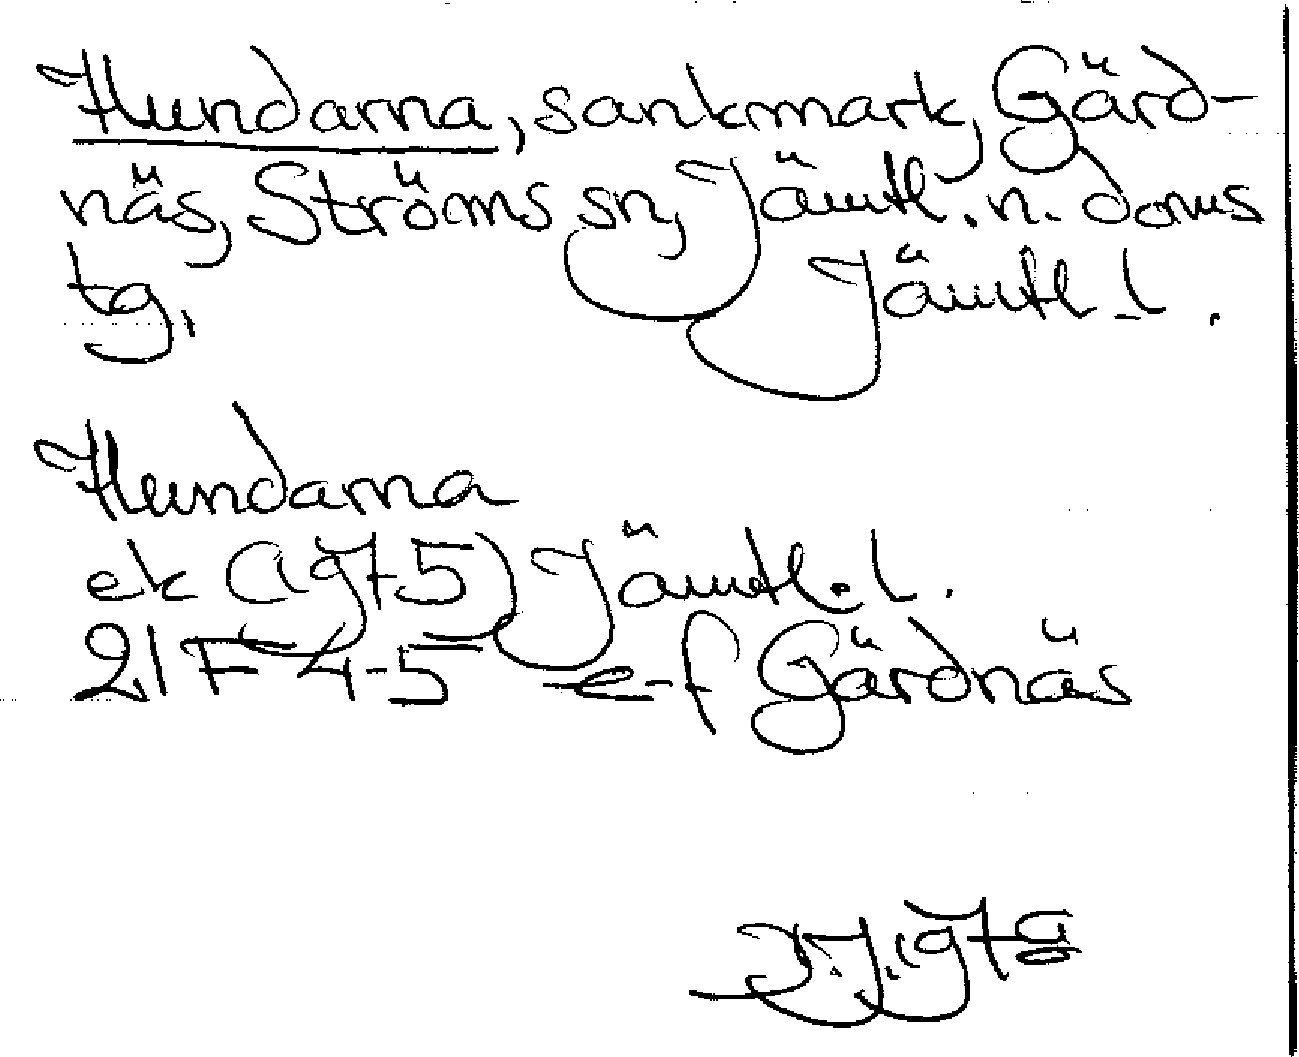 Hundarna, sankmark, Gärd-
näs, Ströms sn, Jämtl. n. doms
tg, Jämtl. l.
Hundarna
ek (1975) Jämtl. l.
21F 4-5 e-f Gärdnäs